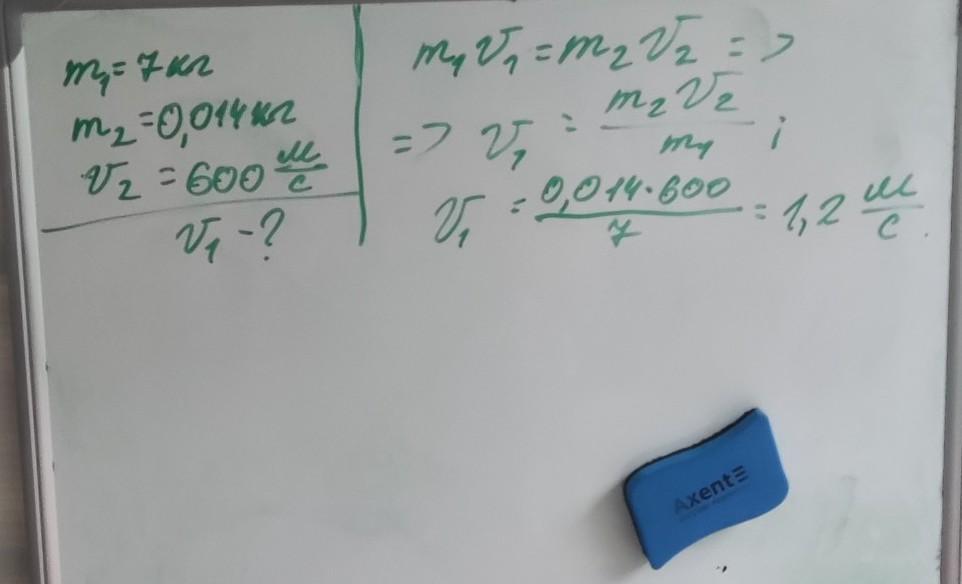 m₁ = 7 кг
m₂ = 0,014 кг
v₂ = 600 м/с
v₁ - ?
m₁v₁ = m₂v₂ =>
=> v₁ = m₂v₂/m₁ ;
v₁ = 0,014·600/7 = 1,2 м/с.
Axent